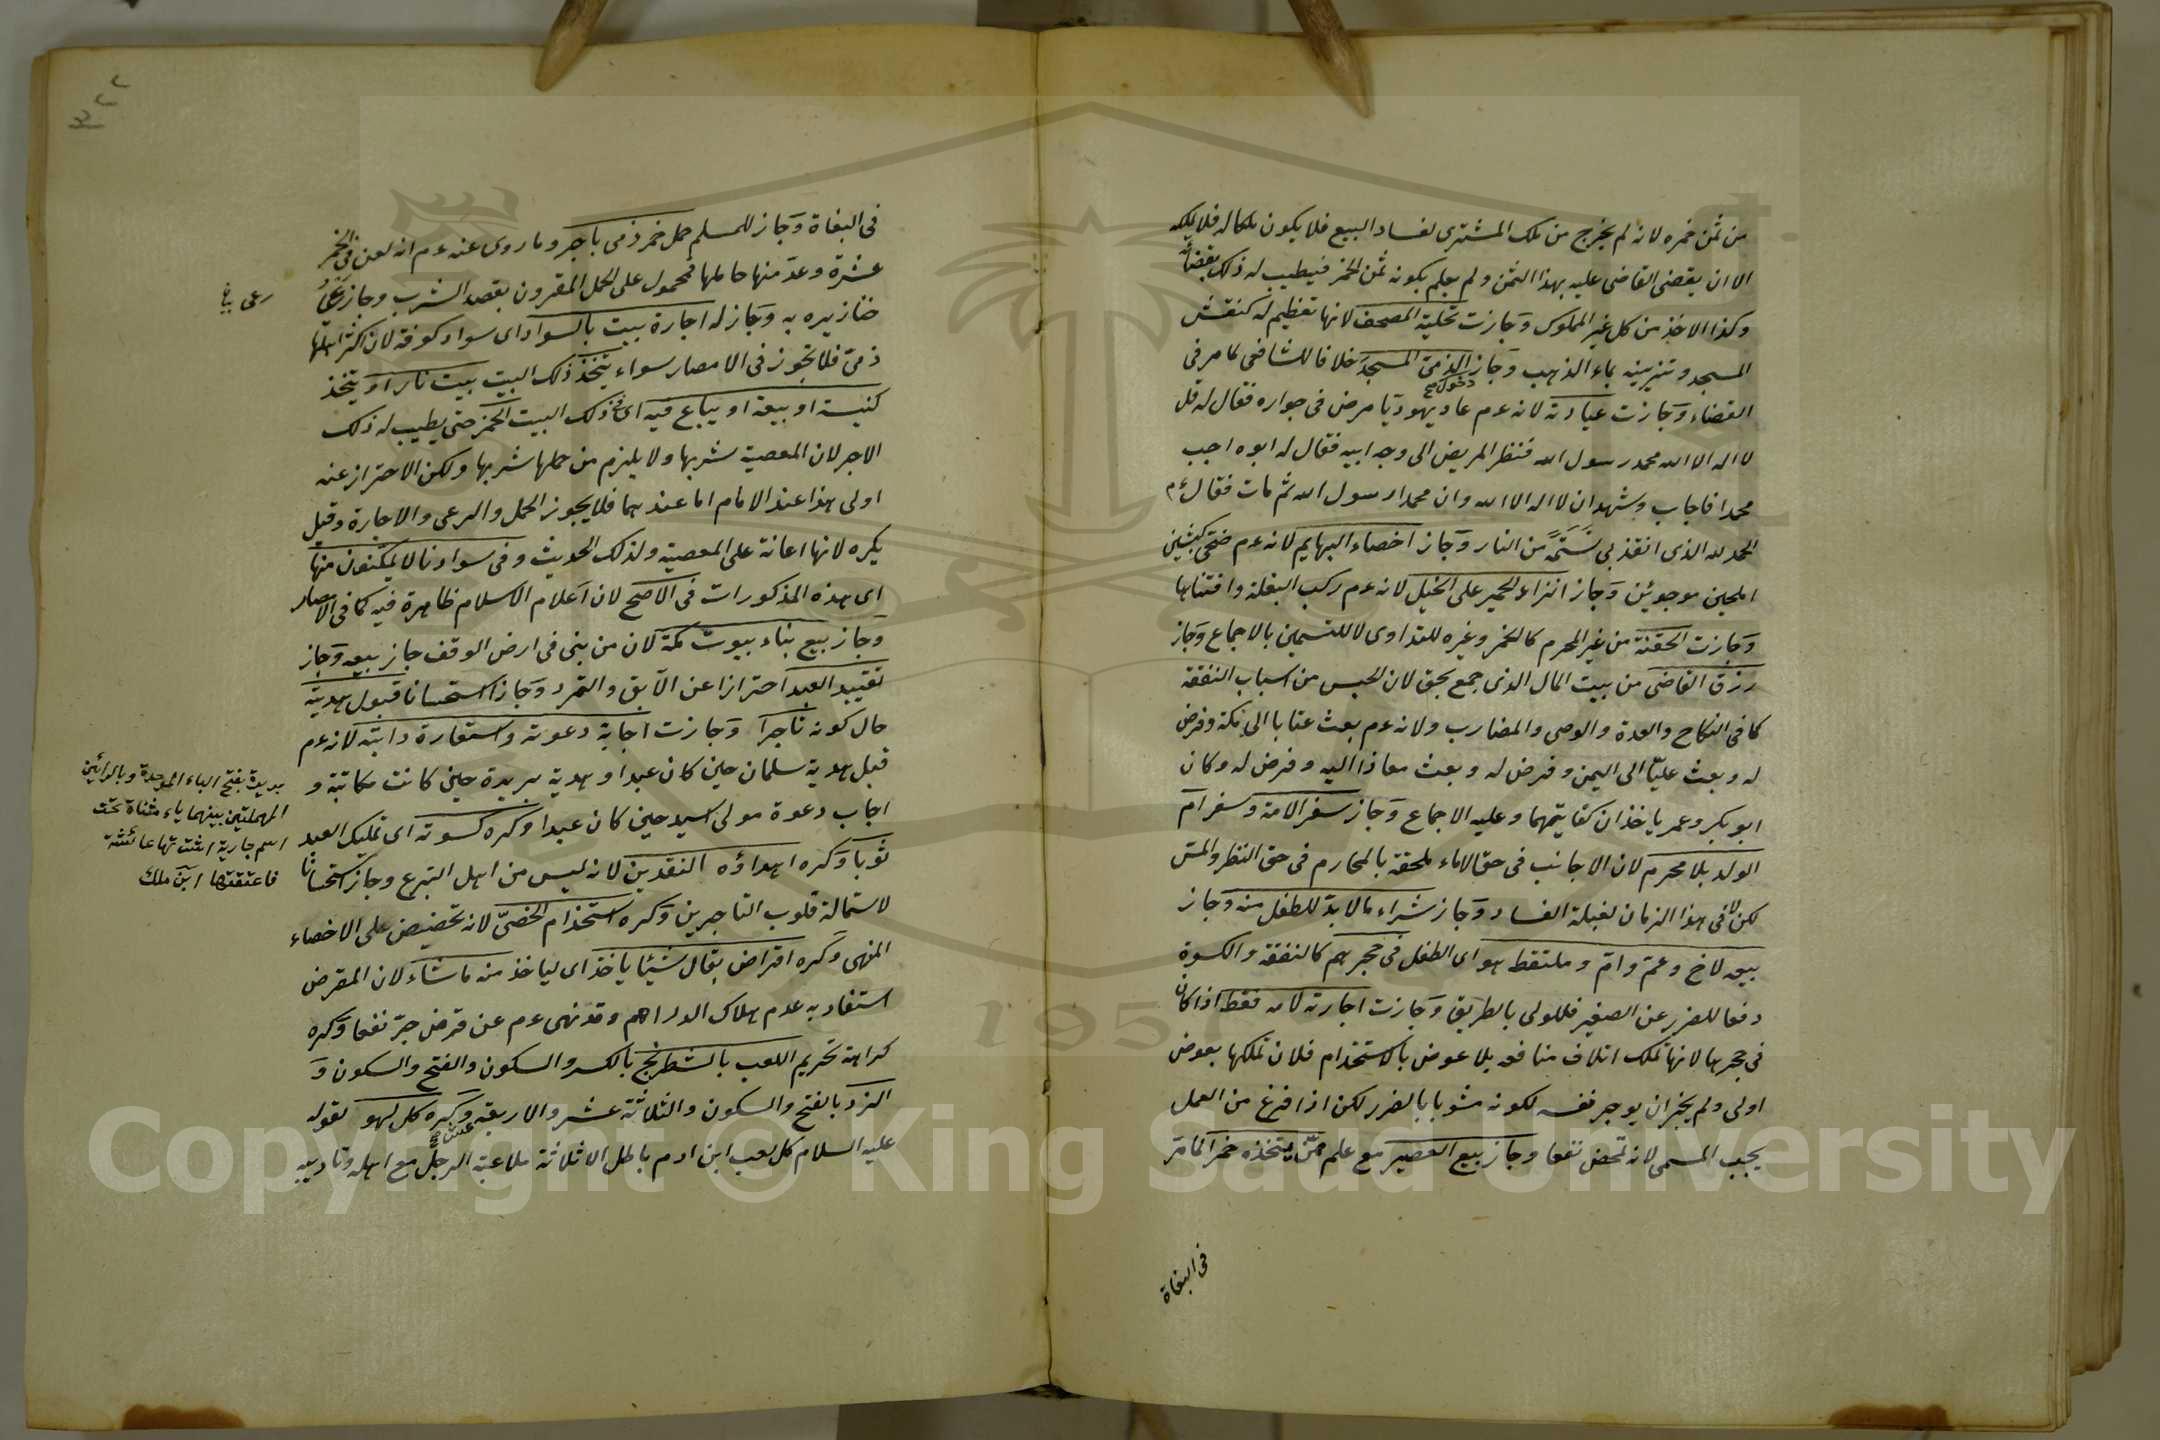 من ثمن خمره لانه لم يخرج من ملك المشترى لفساد البيع فلا يكون ملكا له فلا يملكه
الا ان يقضى القاضى عليه بهذا الثمن ولم يعلم بكونه ثمن الخمر فيطيب له ذلك بقضائه
وكذا الاخذ من كل غير المملوك وجازت تحلية المصحف لانها تعظيم له كنقش
المسجد وتزيينه بماء الذهب وجاز دخول الذمى المسجد خلافا للشافعى لما مر فى
القضاء وجازت عيادته لانه عم عاد يهوديا مرض فى جواره فقال له قل
لا اله الا الله محمد رسول الله فنظر المريض الى وجه ابيه فقال له ابوه اجب
محمدا فاجاب وشهد ان لا اله الا الله وان محمدا رسول الله ثم مات فقال عم
الحمد لله الذى انقذ بى نسمة من النار وجاز اخصاء البهايم لانه عم ضحى بكبشين
املحين موجوئين وجاز انزاء الحمير على الخيل لانه عم ركب البغلة واقتناها
وجازت الحقنة من غير المحرم كالخمر وغيره للتداوى لا للتسمين بالاجماع وجاز
رزق القاضى من بيت المال الذى جمع بحق لان الحبس من اسباب النفقة
كما فى النكاح والعدة والوصى والمضارب ولانه عم بعث عتابا الى مكة وفرض
له وبعث عليا الى اليمن وفرض له وبعث معاذا اليه وفرض له وكان
ابو بكر وعمر ياخذان كفايتهما وعليه الاجماع وجاز سفر الامة وسفر ام
الولد بلا محرم لان الاجانب فى حق الاماء ملحقة بالمحارم فى حق النظر والمس
لكن لا فى هذا الزمان لغلبة الفساد وجاز شراء ما لا بد للطفل منه وجاز
بيعه لاخ وعم وام وملتقط هو اى الطفل فى حجرهم كالنفقة والكسوة
دفعا للضرر عن الصغير فللولى بالطريق وجازت اجارته لامه فقط اذا كان
فى حجرها لانها تملك اتلاف منافعه بلا عوض بالاستخدام فلان تملكها بعوض
اولى ولم يجز ان يوجر نفسه لكونه مشوبا بالضرر لكن اذا فرغ من العمل
يجب المسمى لانه تمحض نفعا وجاز بيع العصير مع علم ممن يتخذه خمرا لما مر
فى البغاة
٣٢٢
فى البغاة وجاز للمسلم حمل خمر ذمى باجر وما روى عنه عم انه لعن فى الخمر
عشرة وعد منها حاملها فمحمول على الحمل المقرون بقصد الشرب وجاز رعى
خنازيره به وجاز له اجارة بيت بالسواد اى سواد كوفة لان اكثر اهلها
ذمى فلا تجوز فى الامصار سواء يتخذ ذلك البيت بيت نار او يتخذ
كنيسة او بيعة او يباع فيه اى فى ذلك البيت الخمر حتى يطيب له ذلك
الاجر لان المعصية شربها ولا يلزم من حملها شربها ولكن الاحتراز عنه
اولى هذا عند الامام اما عندهما فلا يجوز الحمل والرعى والاجارة وقيل
يكره لانها اعانة على المعصية ولذلك الحديث وفى سوادنا لا يمكنون منها
اى هذه المذكورات فى الاصح لان اعلام الاسلام ظاهرة فيه كما فى الامصار
وجاز بيع بناء بيوت مكة لان من بنى فى ارض الوقف جاز بيعه وجاز
تقييد العبد احترازا عن الآبق والتمرد وجاز استحسانا قبول هدية
حال كونه تاجرا وجازت اجابة دعوته واستعارة دابته لانه عم
قبل هدية سلمان حين كان عبدا وهدية بريرة حين كانت مكاتبة و
اجاب دعوة مولى اسيد حين كان عبدا وكره كسوته اى تمليك العبد
ثوبا وكره اهداؤه النقدين لانه ليس من اهل التبرع وجاز استحسانا
لاستمالة قلوب التاجرين وكره استخدام الخصى لانه تحضيض على الاخصاء
المنهى وكره اقراض بقال شيئا ياخذ اى لياخذ منه ما شاء لان المقرض
استفاد به عدم هلاك الدراهم وقد نهى عم عن قرض جر نفعا وكره
كراهة تحريم اللعب بالشطرنج بالكسر والسكون والفتح والسكون و
النرد بالفتح والسكون والثلاثة عشر والاربعة عشر وكره كل لهو لقوله
عليه السلام كل لعب ابن ادم باطل الا ثلاثة ملاعبة الرجل مع اهله وتاديبه
بريرة بفتح الباء الموحدة وبالرائين
المهملتين بينهما ياء مثناة تحت
اسم جارية اشترتها عائشة
فاعتقتها ابن ملك
Copyright © King Saud University
1957